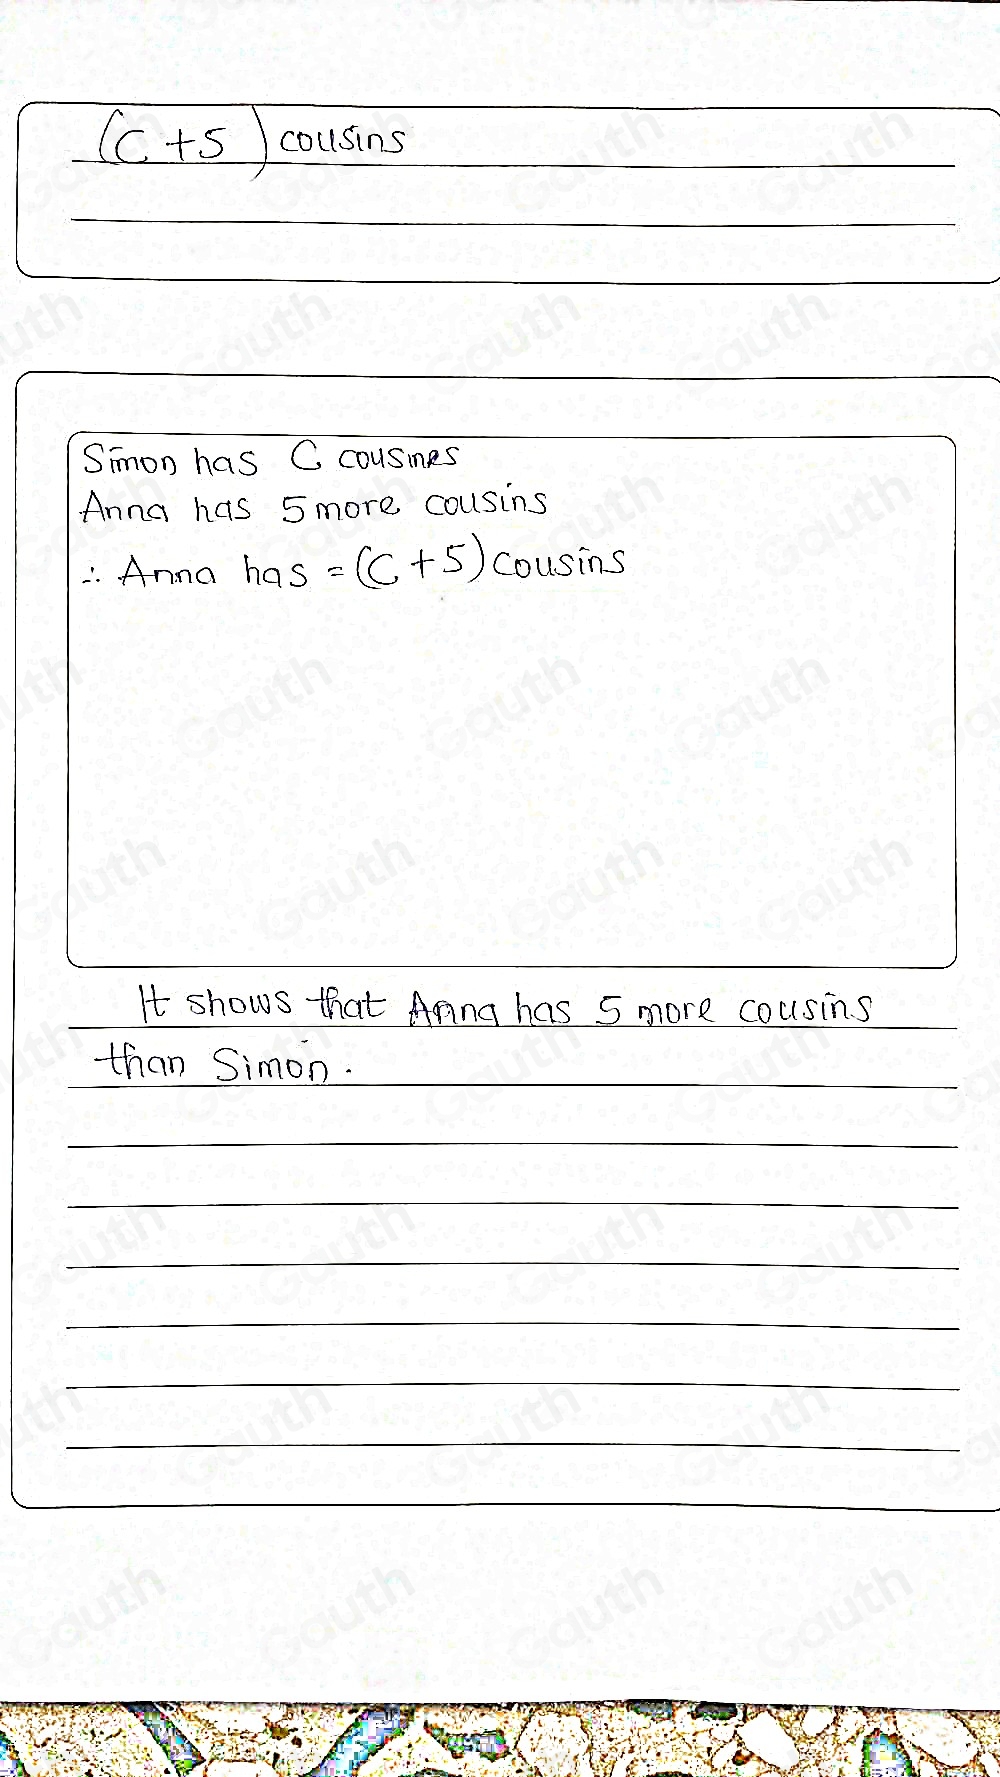 (C + 5) cousins
Simon has C cousines
Anna has 5 more cousins
∴ Anna has = (C + 5) cousins
It shows that Anna has 5 more cousins
than Simon.